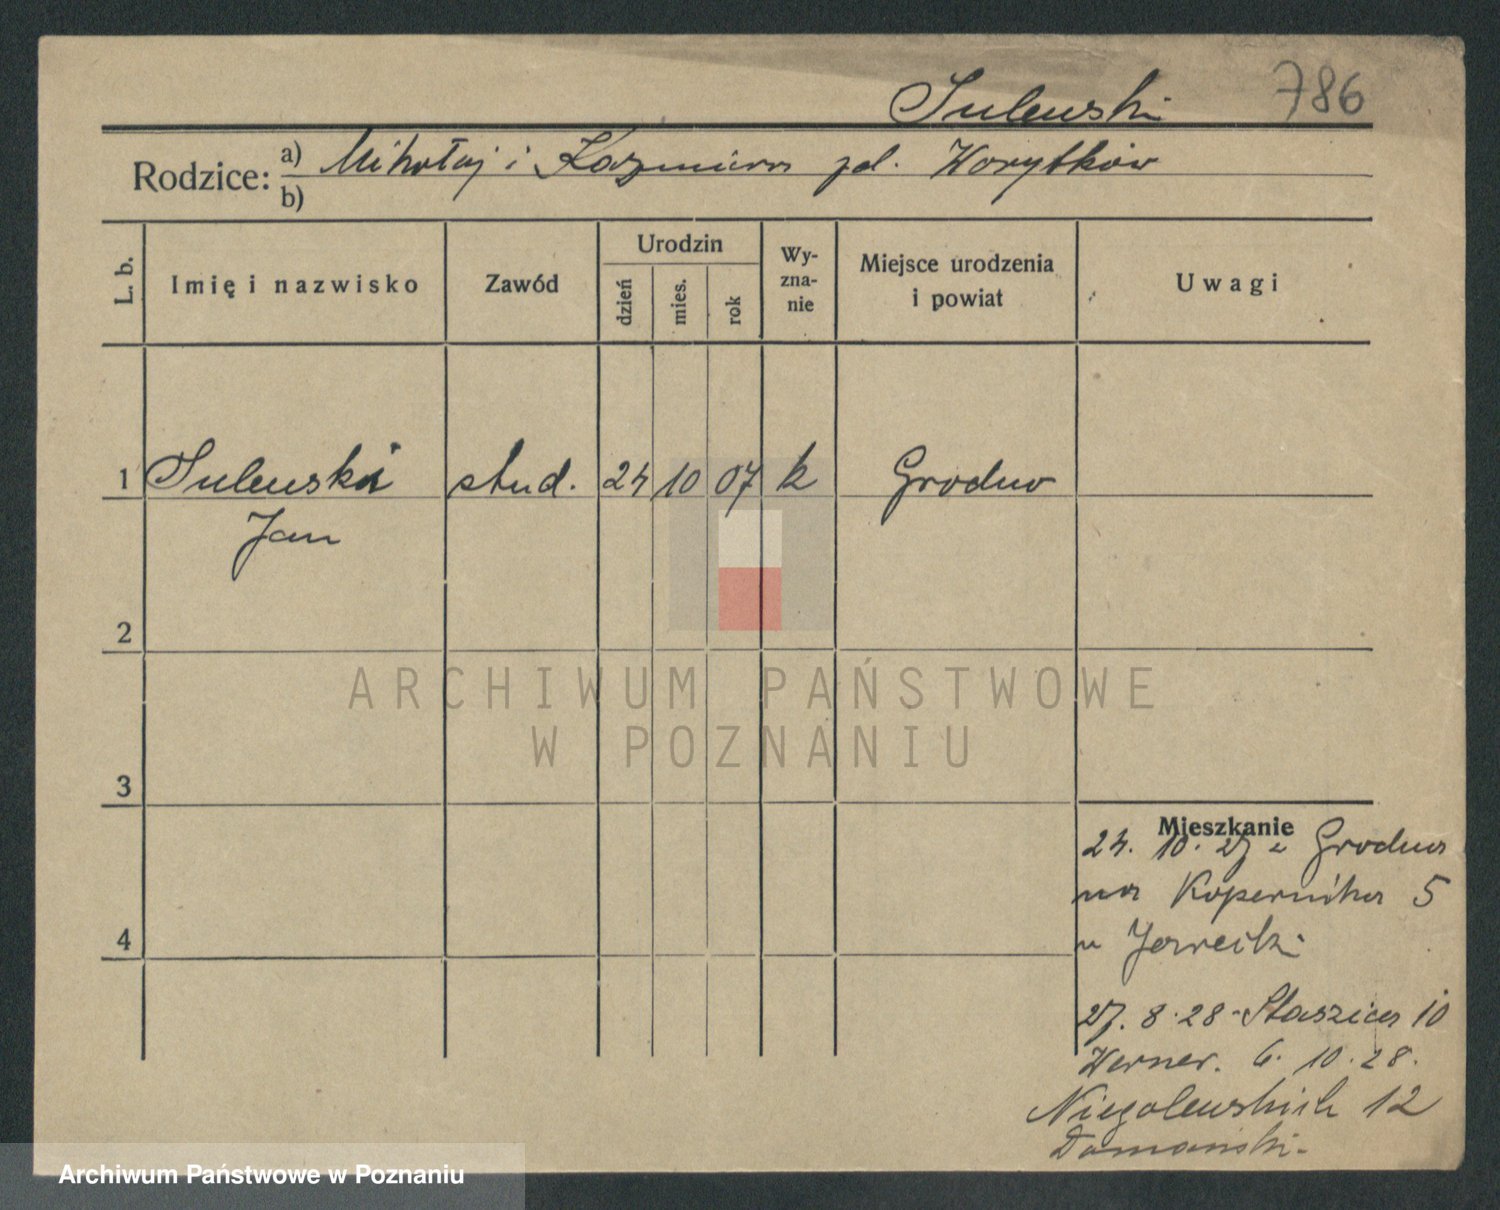 Sulewski 786
Rodzice: a) Mikołaj i Kazimiera zd. Worytków
b)
L. b. Imię i nazwisko Zawód Urodzin dzień mies. rok Wyzna-nie Miejsce urodzenia i powiat Uwagi
1 Sulewski stud. 24 10 07 k Grodno
Jan
2
ARCHIWUM PAŃSTWOWE
W POZNANIU
3
Mieszkanie
24. 10. 27 z Grodna
na Kopernika 5
u
4
27. 8. 28 - Staszica 10
Werner. 6. 10. 28.
Niegolewskich 12
Domański.
Archiwum Państwowe w Poznaniu